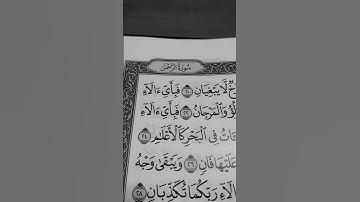 سُورَةُ الرَّحْمٰن
لَّا يَبْغِيَانِ ٢٠ فَبِأَيِّ ءَالَآءِ
وَٱلْمَرْجَانُ ٢٢ فَبِأَيِّ ءَالَآءِ
فِي ٱلْبَحْرِ كَٱلْأَعْلَٰمِ ٢٤
عَلَيْهَا فَانٍ ٢٦ وَيَبْقَىٰ وَجْهُ
ءَالَآءِ رَبِّكُمَا تُكَذِّبَانِ ٢٨